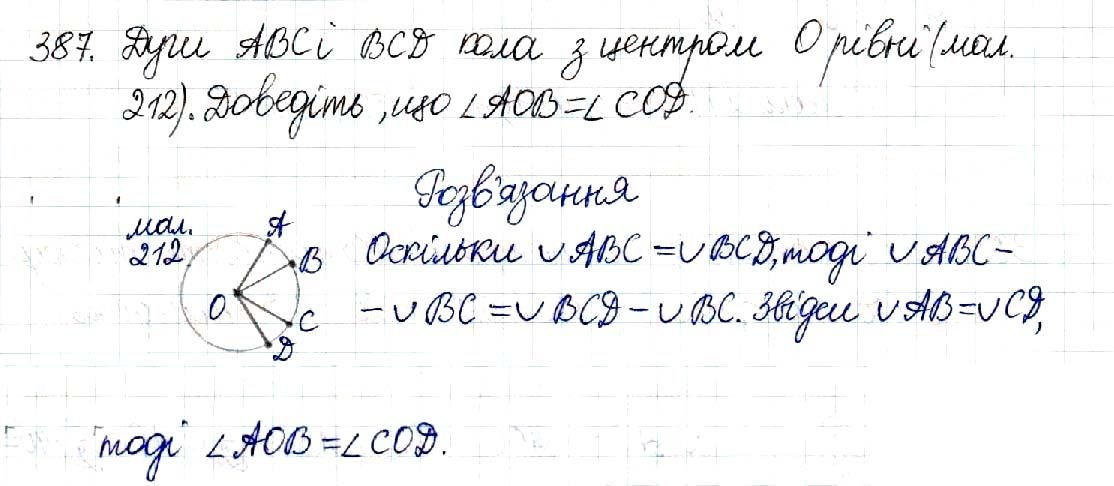 387. Дуги ABC і BCD кола з центром O рівні (мал.
212). Доведіть, що ∠AOB=∠COD.
Розв'язання
мал.
212
A
B
O
C
D
Оскільки ∪ABC=∪BCD, тоді ∪ABC-
-∪BC=∪BCD-∪BC. Звідси ∪AB=∪CD,
тоді ∠AOB=∠COD.